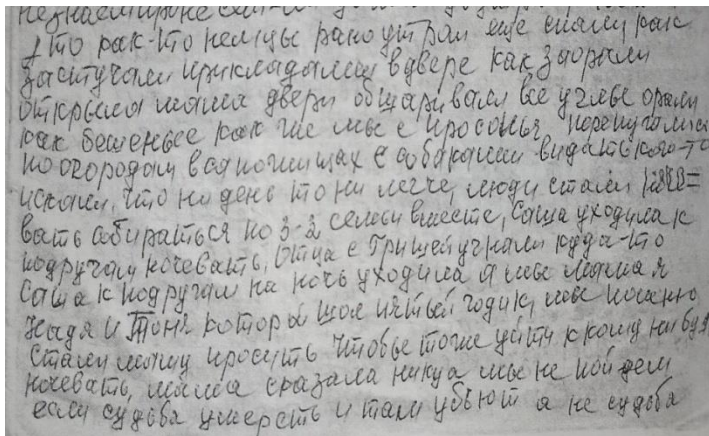 то как-то немцы рано утром еще спали как
застучали прикладами в двере как заорали
открыла мама двери обшаривали все углы орали
как бешеные как же мы с просонья перепугались
по огородам в сапожищах с собаками видать кого-то
искали, что ни день то ни легче, люди стали
вать собираться по 3-2 семьи вместе, Саша уходила к
подругам ночевать, Отца с Гришей угнали куда-то
Саша к подругам на ночь уходила а мы мама я
Надя и Тоня которы шол пятый годик, мы
стали маму просить чтобы тоже уйти к кому нибудь
ночевать, мама сказала никуа мы не пойдем
если судьба умереть и там убьют а не судьба